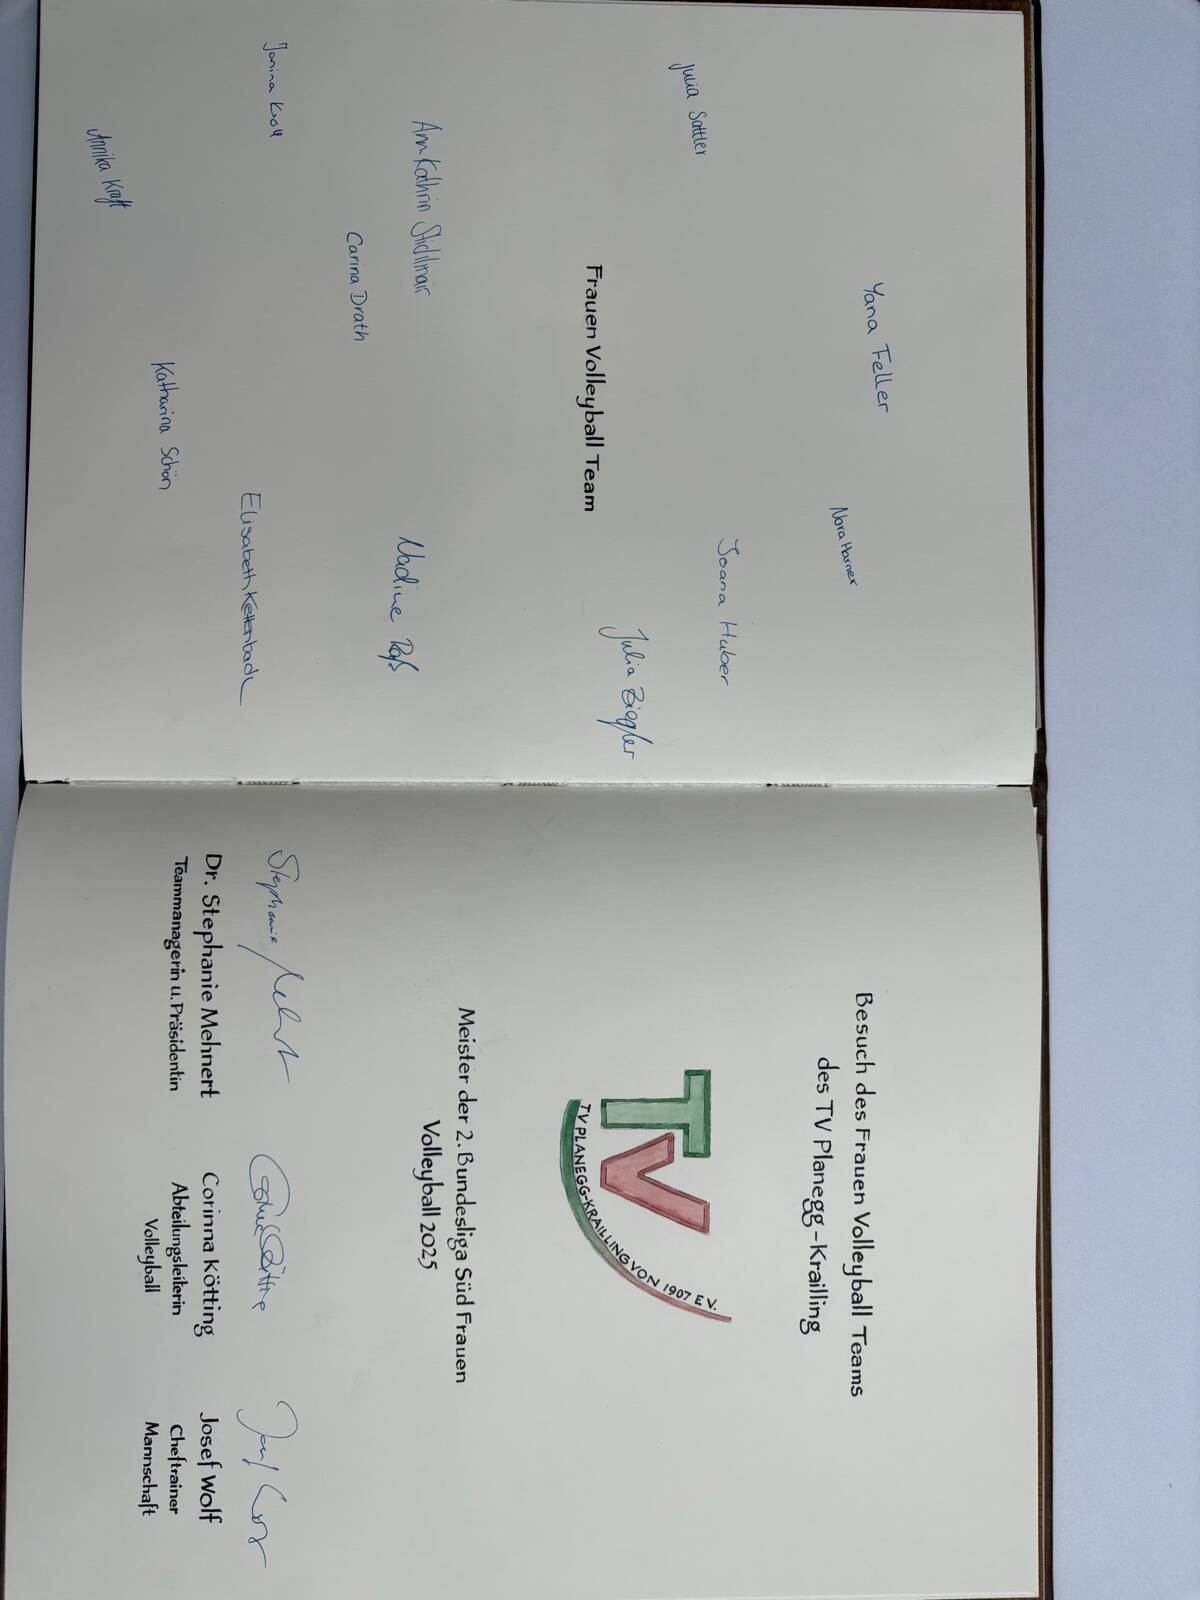 Yana Feller
Nora Harner
Julia Sattler
Joana Huber
Julia Ziegler
Frauen Volleyball Team
Ann-Kathrin Stidlmair
Nadine
Carina Drath
Janina Kroll
Elisabeth Kettenbach
Katharina Schön
Annika Kraft
Besuch des Frauen Volleyball Teams
des TV Planegg-Krailling
TV
TV PLANEGG-KRAILLING VON 1907 E.V.
Meister der 2. Bundesliga Süd Frauen
Volleyball 2025
Stephanie Mehnert
Dr. Stephanie Mehnert
Teammanagerin u. Präsidentin
Corinna Kötting
Abteilungsleiterin
Volleyball
Josef Wolf
Cheftrainer
Mannschaft